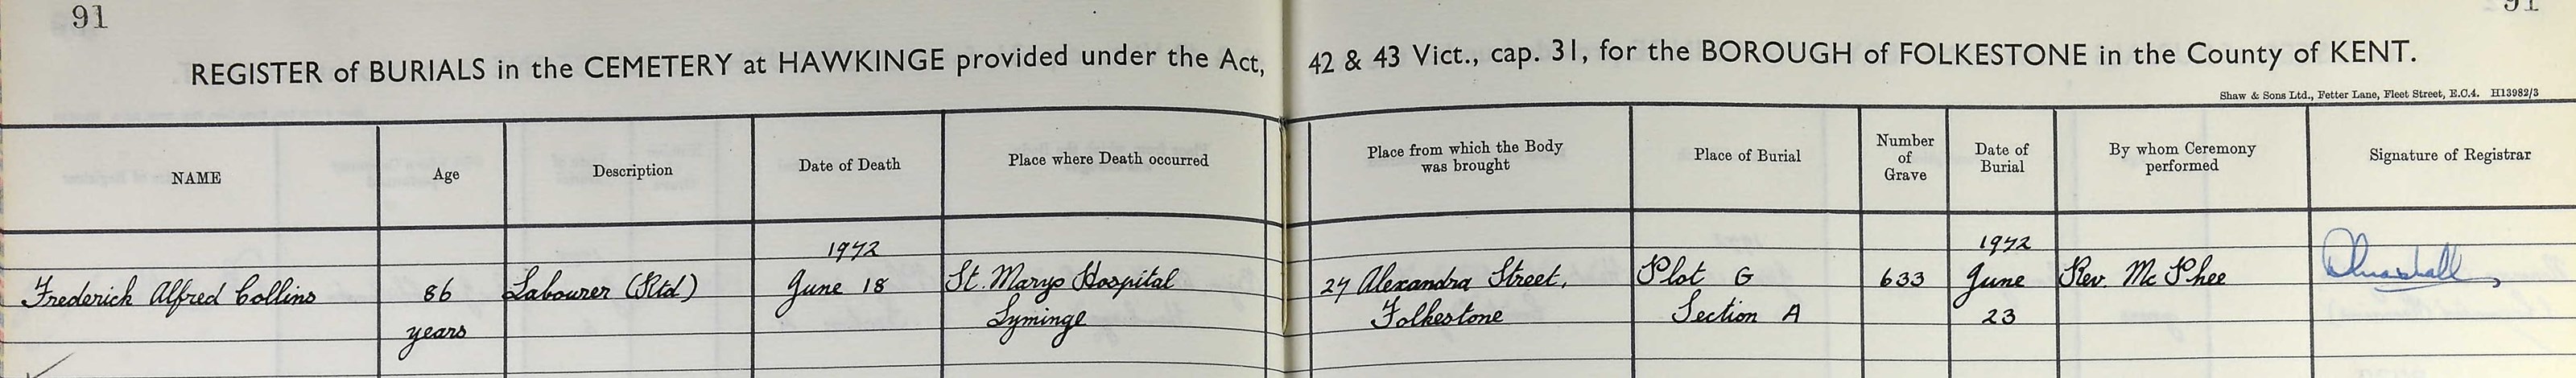 91
91
REGISTER of BURIALS in the CEMETERY at HAWKINGE provided under the Act, 42 & 43 Vict., cap. 31, for the BOROUGH of FOLKESTONE in the County of KENT.
Shaw & Sons Ltd., Fetter Lane, Fleet Street, E.C.4. H13982/3
NAME
Age
Description
Date of Death
Place where Death occurred
Place from which the Body
was brought
Place of Burial
Number
of
Grave
Date of
Burial
By whom Ceremony
performed
Signature of Registrar
1972
1972
Frederick Alfred Collins 86 Labourer (Rtd) June 18 St. Marys Hospital 27 Alexandra Street, Plot G 633 June Rev. Mc Phee
years Lyminge Folkestone Section A 23